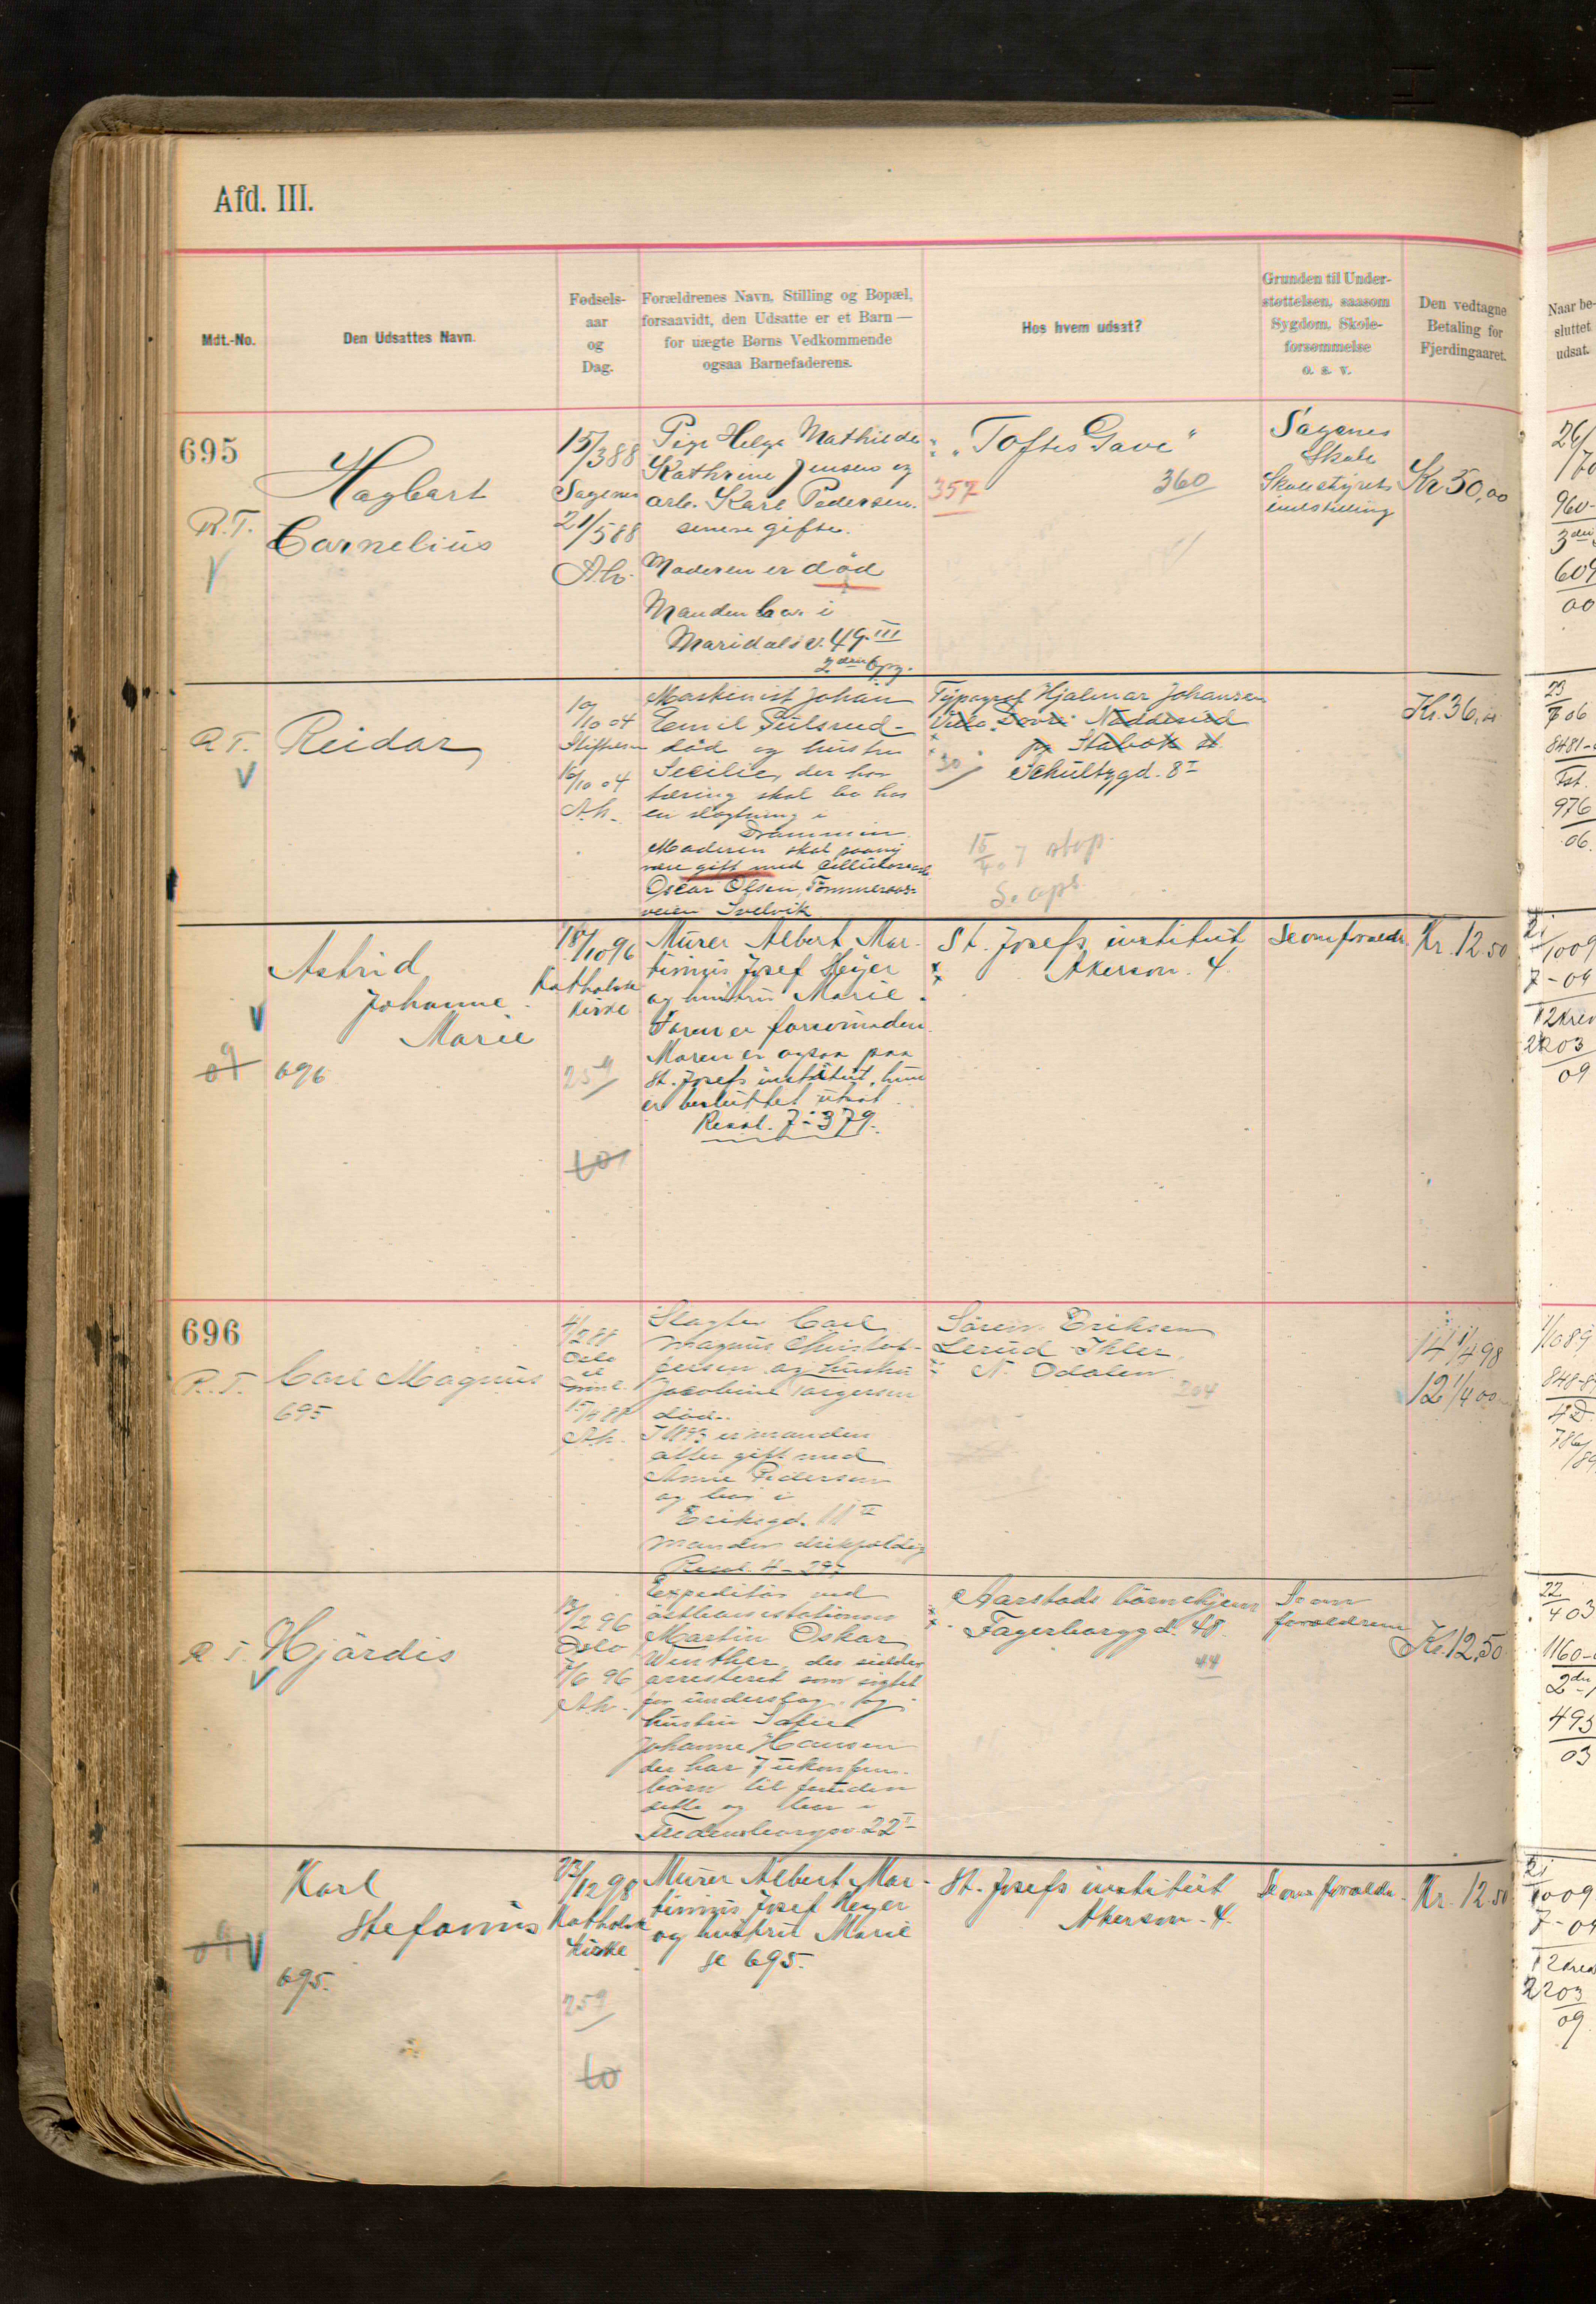 Afd. III.
Mdt.-No.
Den Udsattes Navn.
Fødsels-
aar
og
Dag.
Forældrenes Navn, Stilling og Bopæl,
forsaavidt, den Udsatte er et Barn —
for uægte Børns Vedkommende
ogsaa Barnefaderens.
Hos hvem udsat?
Grunden til Under-
støttelsen, saasom
Sygdom, Skole-
forsømmelse
o. s. v.
Den vedtagne
Betaling for
Fjerdingaaret.
Naar be-
sluttet
udsat.
695
R.T.
Hagbart
Cornelius
15/3 88
Sagenes
21/5 88
Pige Helga Mathilde
Kathrine Jensen og
arb. Karl Pedersen.
senere gifte.
Moderen er död
Manden bor i
Maridalsv. 49 III
2den Opg.
"Toftes Gave"
357
360
Sagenes
Skole
Skolestyrets
indstilling
Kr 50,00
R.T.
Reidar
10/10 04
Maskinist Johan
Emil
död og hustru
Secilie, der har
tæring skal bo hos
en slagtning i
Drammen
Moderen skal
være gift med
Oscar Olsen,
veien Svelvik
Typograf Hjalmar Johansen
Schultzgd. 8 I
30
stop
Kr. 36,
Astrid
Johanne
Marie
09
696
18/10 96
Katholsk
kirke
259
Murer Albert Mar-
tinius Josef Heyer
og hustru Marie.
Faren er forsvunden.
Moren er ogsaa paa
St. Josefs institut, hun
er besluttet utsat
Resol. 7-379.
St. Josefs institut
Akersvn. 4.
Se om foraeldr.
Kr. 12.50
696
R.T.
Carl Magnus
695
4/2 88
Oslo
Slagter Carl
Magnus Christof-
fersen og hustru
Jacobine Torgersen
död.
I 1893 er manden
atter gift med
Anne Pedersen
og bor i
Eriksgd. 11 II
Manden drikfældig
Resol. 4-297
Sören Eriksen
Lerud
N. Odalen
204
14 1/4 98
12 1/4 00
R.T.
Hjördis
2 96
Oslo
7/6 96
Expeditör ved
östbanestationen
Martin Oskar
Winther, der sidder
arresteret som sigtet
for underslag. og
hustru
Johanne Hansen
der har 7 ukonfirm.
börn til foruden
dette og bor i
Fredensborgv. 22 I
Aarstads börnehjem
Fagerborggd. 48.
44
Se om
forældrene
Kr. 12,50
Karl
Stefanus
695.
23/12 98
Katholsk
kirke
259
Murer Albert Mar-
tinius Josef Heyer
og hustru Marie
se 695.
St. Josefs institut
Akersvn. 4.
Se om foraeldr.
Kr. 12.50